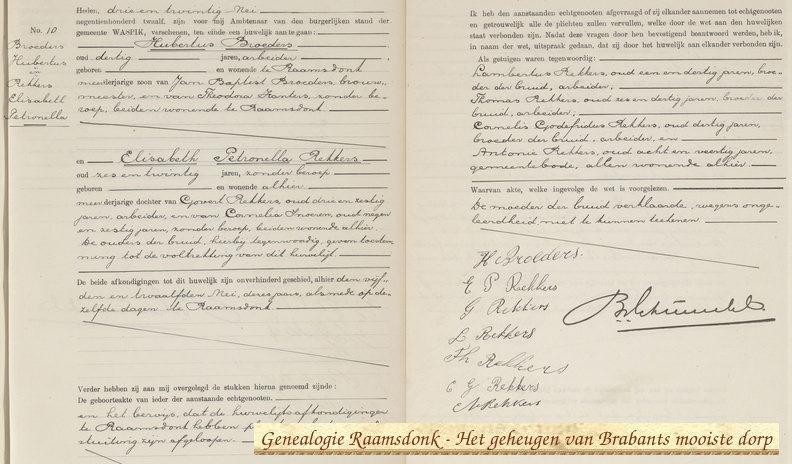 No. 10
Broeders
Hubertus
en
Rekkers
Elisabeth
Petronella
Heden, drie en twintig Mei
negentienhonderd twaalf, zijn voor mij Ambtenaar van den burgerlijken stand der
gemeente WASPIK, verschenen, ten einde een huwelijk aan te gaan:
Hubertus Broeders
oud dertig jaren, arbeider
geboren en wonende te Raamsdonk
meerderjarige zoon van Jan Baptist Broeders, brouw-
meester, en van Theodora Kanters, zonder be-
roep, beiden wonende te Raamsdonk.
en Elisabeth Petronella Rekkers
oud zes en twintig jaren, zonder beroep
geboren en wonende alhier
meerderjarige dochter van Govert Rekkers, oud drie en zestig
jaren, arbeider, en van Cornelia oud negen
en zestig jaren, zonder beroep, beiden wonende alhier.
De ouders der bruid, hierbij tegenwoordig, geven toestem-
ming tot de voltrekking van dit huwelijk.
De beide afkondigingen tot dit huwelijk zijn onverhinderd geschied, alhier den vijf-
den en twaalfden Mei, dezes jaars, alsmede op de-
zelfde dagen te Raamsdonk.
Verder hebben zij aan mij overgelegd de stukken hierna genoemd zijnde:
De geboorteakten van ieder der aanstaande echtgenooten.
en het bewijs, dat de huwelijksafkondigingen
te Raamsdonk hebben
stuiting zijn afgeloopen.
Ik heb den aanstaanden echtgenooten afgevraagd of zij elkander aannemen tot echtgenooten
en getrouwelijk alle de plichten zullen vervullen, welke door de wet aan den huwelijken
staat verbonden zijn. Nadat deze vragen door hen bevestigend beantwoord werden, heb ik,
in naam der wet, uitspraak gedaan, dat zij door het huwelijk aan elkander verbonden zijn.
Als getuigen waren tegenwoordig:
Lambertus Rekkers, oud een en dertig jaren, broe-
der der bruid, arbeider;
Thomas Rekkers, oud zes en dertig jaren, broeder der
bruid, arbeider;
Cornelis Godefridus Rekkers, oud dertig jaren,
broeder der bruid, arbeider, en
Antonie Rekkers, oud acht en veertig jaren,
gemeentebode, allen wonende alhier.
Waarvan akte, welke ingevolge de wet is voorgelezen.
De moeder der bruid verklaarde, wegens onge-
leerdheid, niet te kunnen teekenen.
H Broeders.
E P Rekkers
G Rekkers
L Rekkers
Th Rekkers
C G Rekkers
A Rekkers
Genealogie Raamsdonk - Het geheugen van Brabants mooiste dorp